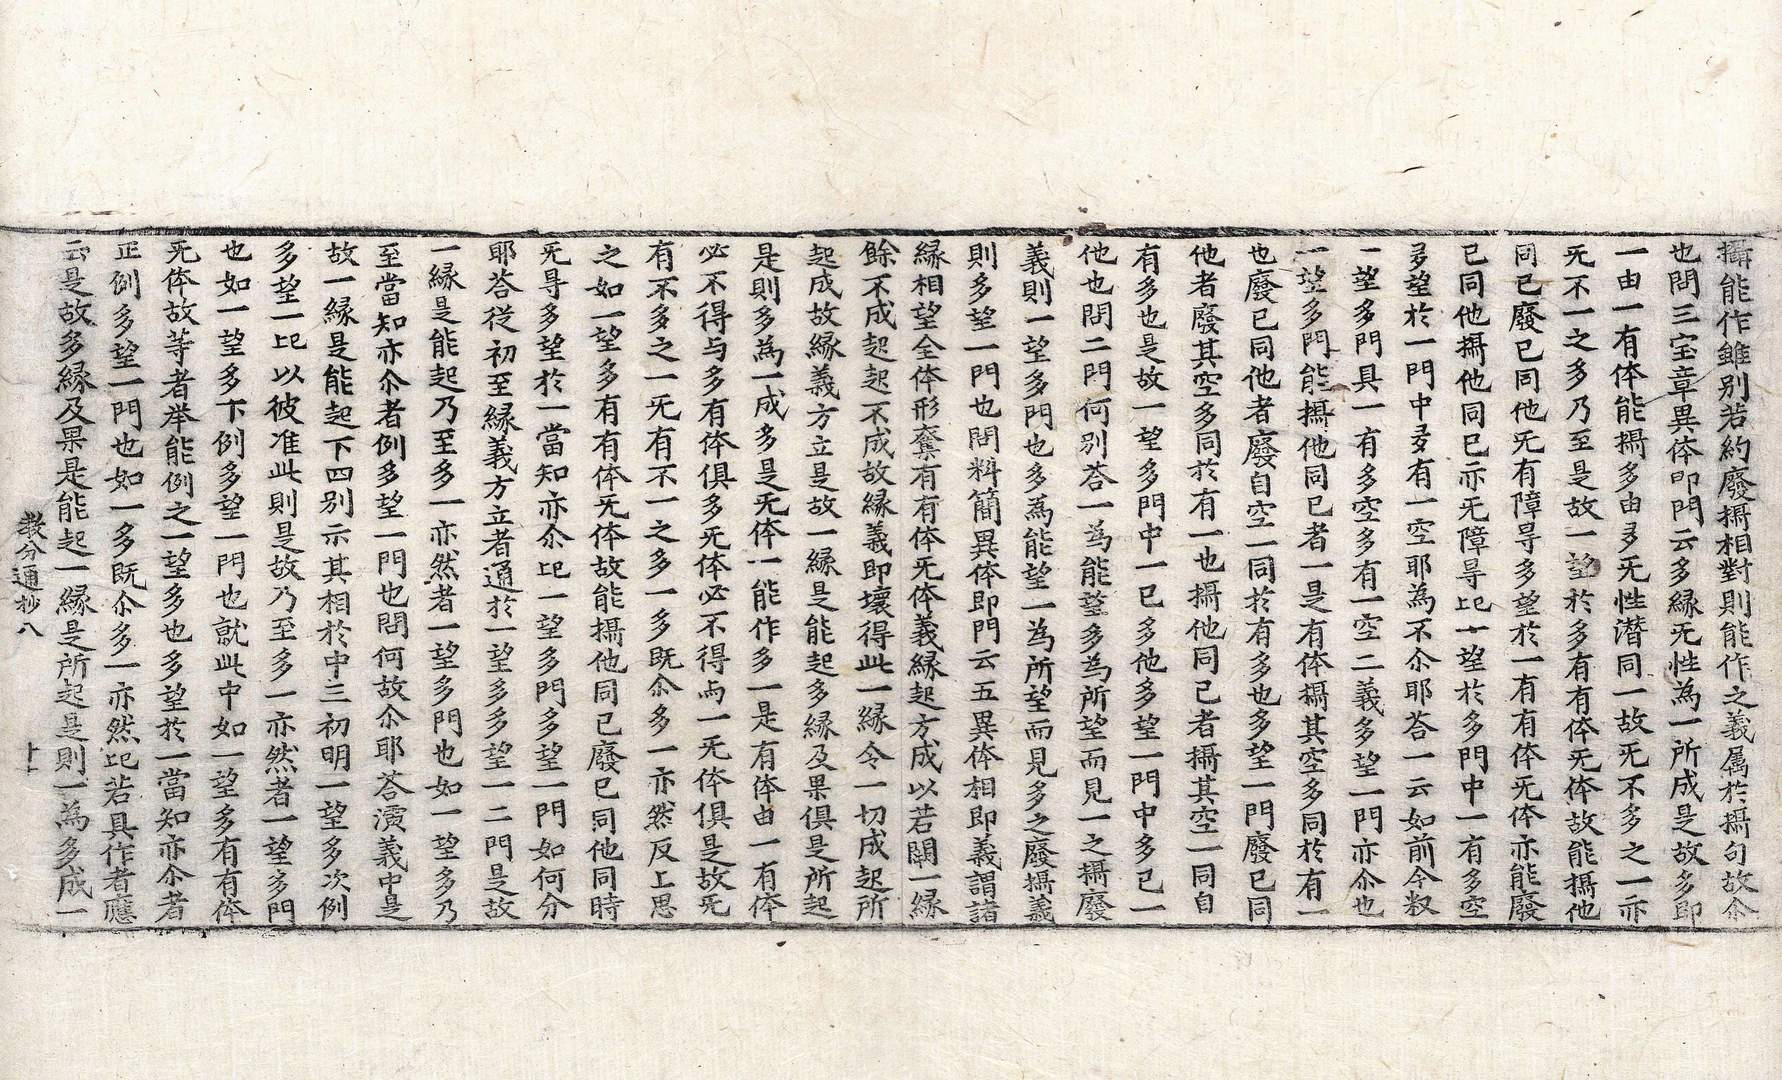 攝能作雖別若約廢攝相對則能作之義属於攝句故尒
也問三宝章異体即門云多縁旡性為一所成是故多即
一由一有体能攝多由多旡性潜同一故旡不多之一亦
旡不一之多乃至是故一望於多有有体旡体故能攝他
同已廢已同他旡有障㝵多望於一有有体旡体亦能廢
已同他攝他同已亦旡障㝵此一望於多門中一有多空
多望於一門中多有一空耶為不尒耶荅一云如前今叙
一望多門具一有多空多有一空二義多望一門亦尒也
一望多門能攝他同已者一是有体攝其空多同於有一
也廢已同他者廢自空一同於有多也多望一門廢已同
他者廢其空多同於有一也攝他同已者攝其空一同自
有多也是故一望多門中一已多他多望一門中多已一
他也問二門何別荅一為能望多為所望而見一之攝廢
義則一望多門也多為能望一為所望而見多之廢攝義
則多望一門也問料簡異体即門云五異体相即義謂諸
縁相望全体形奪有有体旡体義縁起方成以若闕一縁
餘不成起起不成故縁義即壞得此一縁令一切成起所
起成故縁義方立是故一縁是能起多縁及果俱是所起
是則多為一成多是旡体一能作多一是有体由一有体
必不得与多有体俱多旡体必不得与一旡体俱是故旡
有不多之一旡有不一之多一多既尒多一亦然反上思
之如一望多有有体旡体故能攝他同已廢已同他同時
旡㝵多望於一當知亦尒此一望多門多望一門如何分
耶荅從初至縁義方立者通於一望多多望一二門是故
一縁是能起乃至多一亦然者一望多門也如一望多乃
至當知亦尒者例多望一門也問何故尒耶荅演義中是
故一縁是能起下四別示其相於中三初明一望多次例
多望一此以彼准此則是故乃至多一亦然者一望多門
也如一望多下例多望一門也就此中如一望多有有体
旡体故等者举能例之一望多也多望於一當知亦尒者
正例多望一門也如一多既尒多一亦然此若具作者應
云是故多縁及果是能起一縁是所起是則一為多成一
教分通抄八　十一